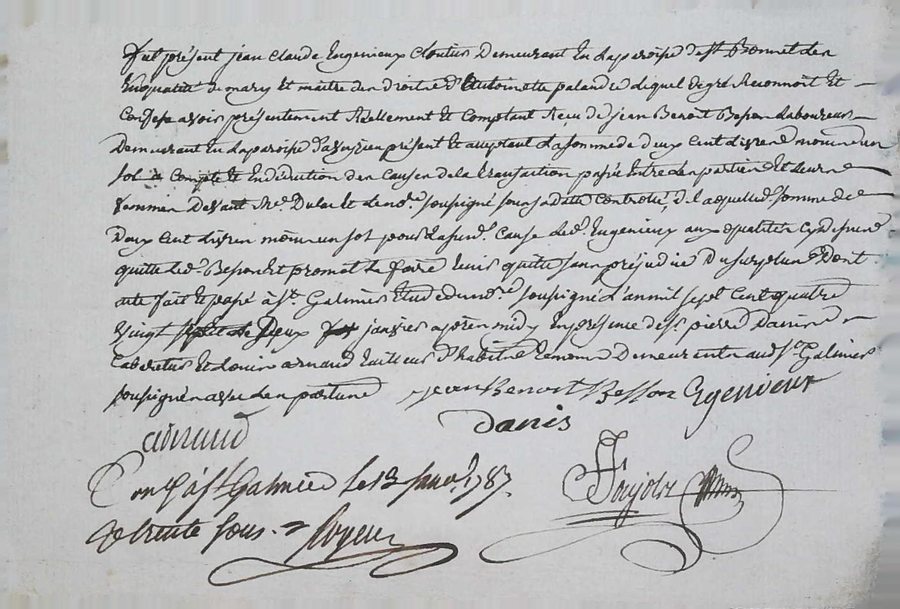 fut présent jean Claude Eugenieux Cloutier Demeurant En la parroisse de St Bonnet les
En qualité de mary et maitre des droits d'Antoinette palandre lequel de gré Reconnoit Et
Confesse avoir présentement Réellement Et Comptant Reçu de Jean Benoit Besson Laboureur
Demeurant En la paroisse d'aveizieu présent Et acceptant La somme de deux Cent Livres moins un
sol à Compte Et En déduction des Causes de la transaction passée Entre les parties Et leurs
femmes Devant Me. Dulac Et le no.re soussigné sous sa date Controllé, de laquelle d. somme de
Deux Cent Livres moins un sol pour la susd. Cause led. Eugenieux aux qualités Cy dessus
quitte led. Besson Et promet le faire tenir quitte sans préjudice Du surplus Dont
acte fait Et passé à St. Galmier Etude du no.re soussigné L'an mil sept Cent quatre
vingt sept Le Deux janvier après midy En présence de Sr pierre Danis
Cabaretier Et Louis arnaud tailleur d'habits témoins Demeurants aud. St. Galmier
soussignés avec les parties
Jean Benoit Besson Egenieux
arnaud
Danis
Con. à St. Galmier le 13 janv. 1787.
Rc trente sous.